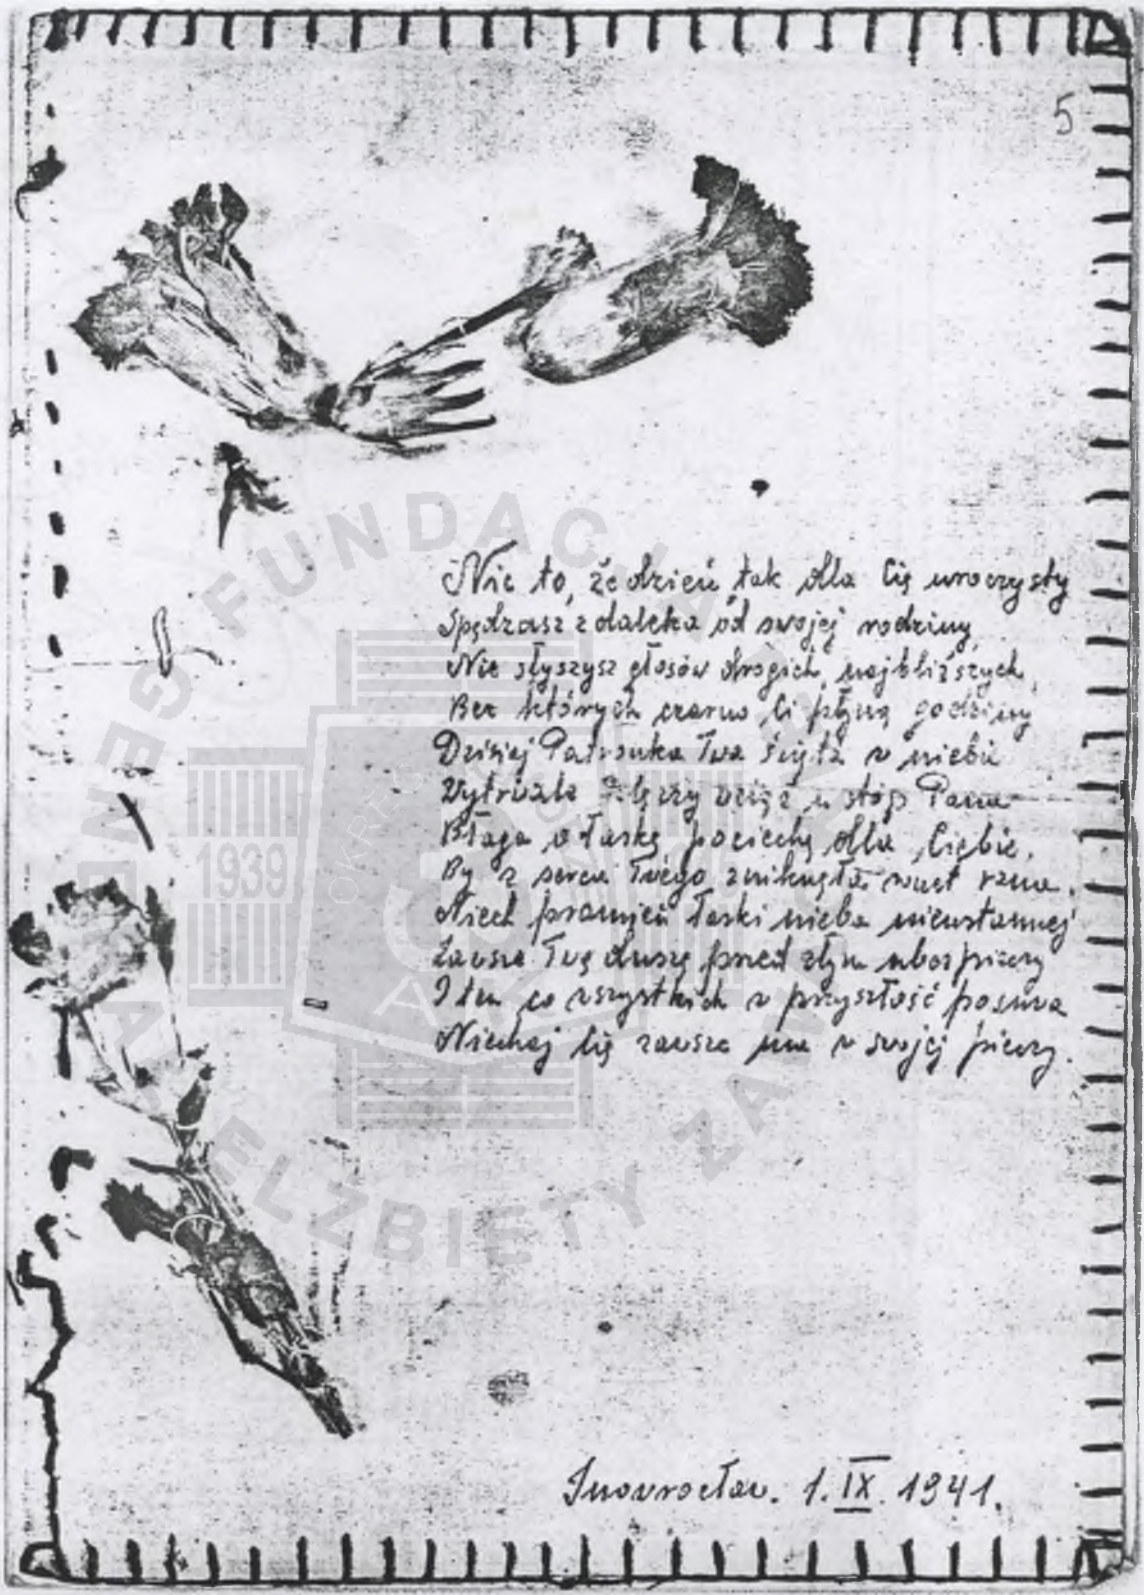 5
Nic to, że dzień, tak dla Cię uroczysty
Spędzasz zdaleka od swojej rodziny,
Nie słyszysz głosów drogich, najbliższych,
Bez których czarno Ci płyną godziny
Dzisiaj Patronka Twa święta w niebie
Wytrwale klęczy wciąż u stóp Pana
Błaga o łaskę, pociechę dla Ciebie,
By z serca Twego zniknęła rana.
Niech promień łaski nieba nieustannej
Zawsze Twą duszę przed złym ubezpieczy
I ten co wszystkich w przyszłość posuwa
Niechaj Cię zawsze ma w swojej pieczy.
Inowrocław. 1. IX. 1941.
FUNDACJA GENERAŁ ELŻBIETY ZAWACKIEJ
1939